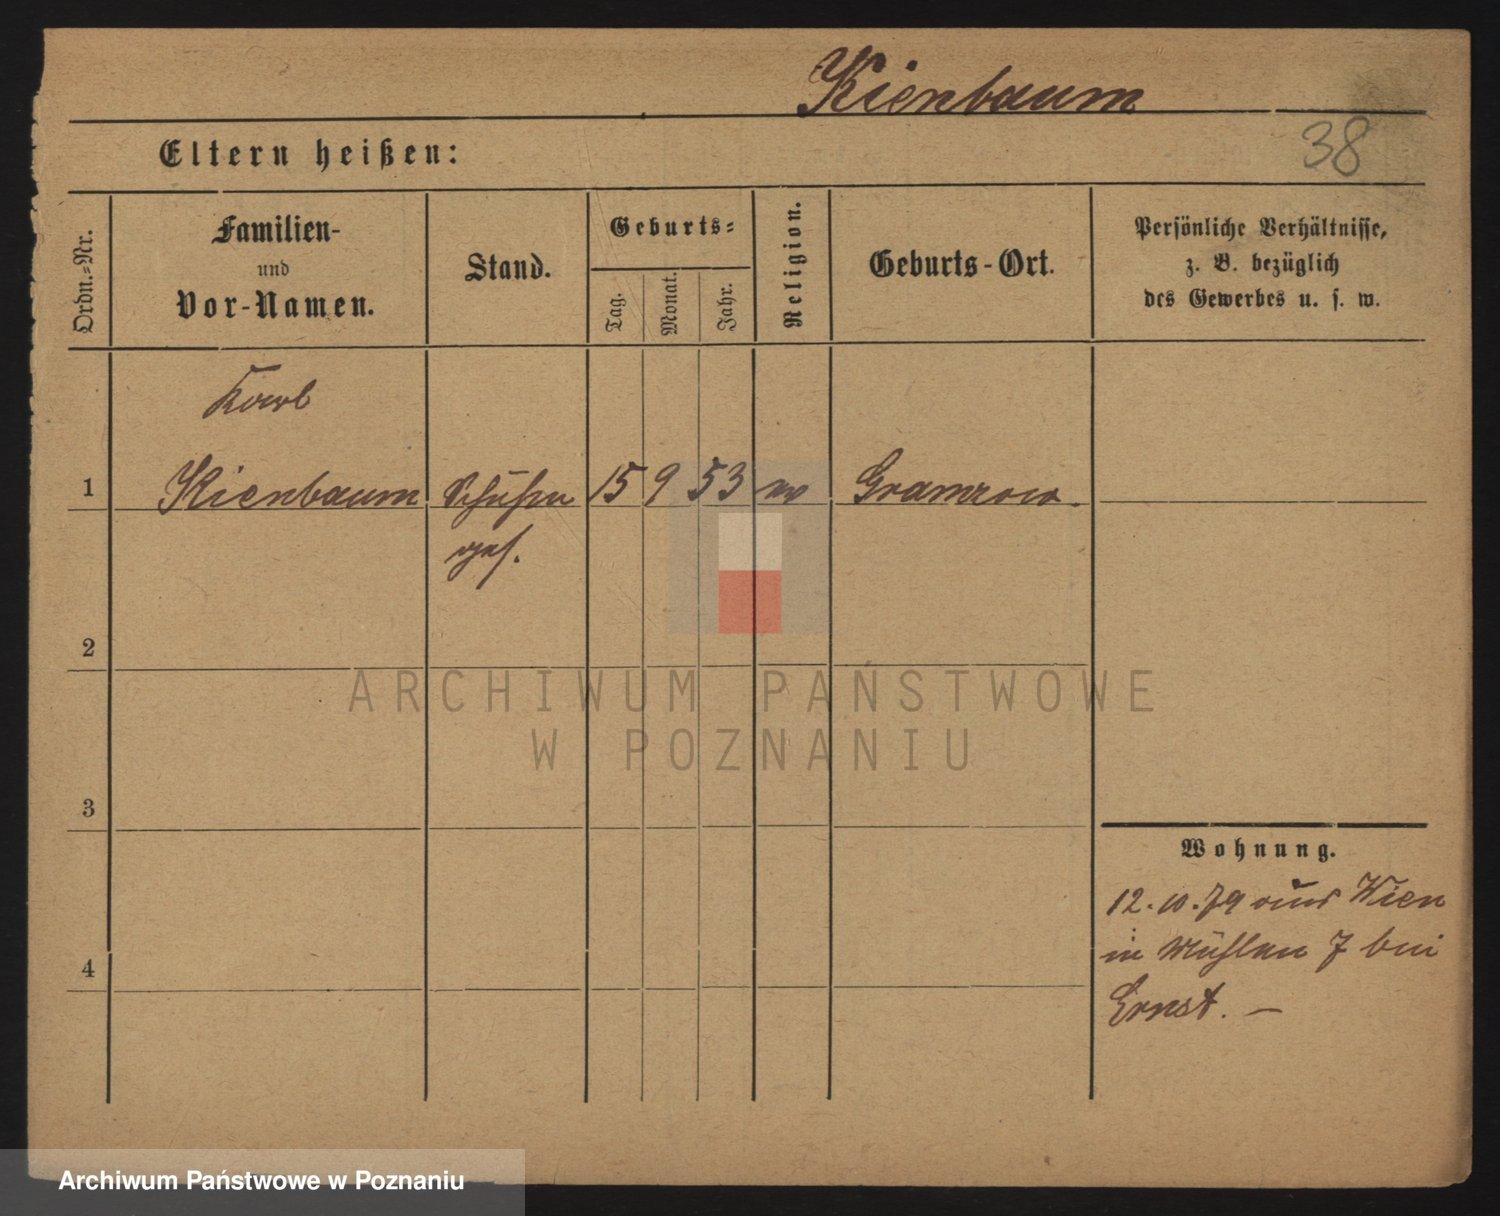 Kienbaum
38
Eltern heißen:
Ordn.=Nr.
Familien-
und
Vor-Namen.
Stand.
Geburts=
Tag.
Monat.
Jahr.
Religion.
Geburts-Ort.
Persönliche Verhältnisse,
z. B. bezüglich
des Gewerbes u. s. w.
Karl
1 Kienbaum 15 9 53 ev Gramzow.
ges.
2
ARCHIWUM PAŃSTWOWE
W POZNANIU
3
Wohnung.
12. 10. 79 aus Wien
in Mühlen 7 bei
4
Ernst. —
Archiwum Państwowe w Poznaniu